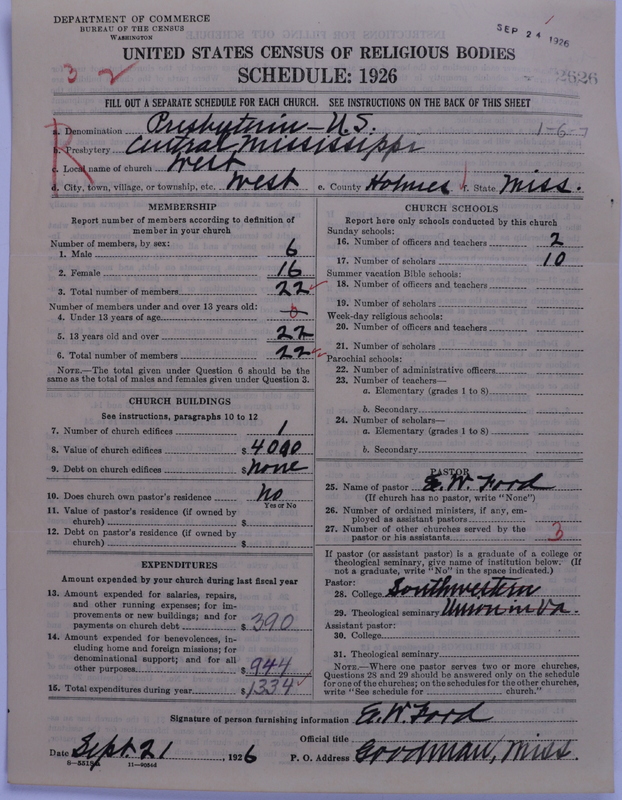 DEPARTMENT OF COMMERCE
BUREAU OF THE CENSUS
WASHINGTON
SEP 24 1926
UNITED STATES CENSUS OF RELIGIOUS BODIES
SCHEDULE: 1926
3 2
2626
FILL OUT A SEPARATE SCHEDULE FOR EACH CHURCH. SEE INSTRUCTIONS ON THE BACK OF THIS SHEET
R
a. Denomination Presbyterin-U.S. 1-6-7
b. Presbytery Central Mississippi
c. Local name of church West
d. City, town, village, or township, etc. West e. County Holmes f. State Miss.
MEMBERSHIP
Report number of members according to definition of
member in your church
Number of members, by sex:
1. Male 6
2. Female 16
3. Total number of members 22
Number of members under and over 13 years old:
4. Under 13 years of age 0
5. 13 years old and over 22
6. Total number of members 22
NOTE.—The total given under Question 6 should be
same as the total of males and females given under Question 3.
CHURCH BUILDINGS
See instructions, paragraphs 10 to 12
7. Number of church edifices 1
8. Value of church edifices $4000
9. Debt on church edifices $none
10. Does church own pastor's residence no
Yes or No
11. Value of pastor's residence (if owned by
church) $
12. Debt on pastor's residence (if owned by
church) $
EXPENDITURES
Amount expended by your church during last fiscal year
13. Amount expended for salaries, repairs,
and other running expenses; for im-
provements or new buildings; and for
payments on church debt $390
14. Amount expended for benevolences, in-
cluding home and foreign missions; for
denominational support; and for all
other purposes $944
15. Total expenditures during year $1334
CHURCH SCHOOLS
Report here only schools conducted by this church
Sunday schools:
16. Number of officers and teachers 2
17. Number of scholars 10
Summer vacation Bible schools:
18. Number of officers and teachers
19. Number of scholars
Week-day religious schools:
20. Number of officers and teachers
21. Number of scholars
Parochial schools:
22. Number of administrative officers
23. Number of teachers—
a. Elementary (grades 1 to 8)
b. Secondary
24. Number of scholars—
a. Elementary (grades 1 to 8)
b. Secondary
PASTOR
25. Name of pastor E. W. Ford
(If church has no pastor, write "None")
26. Number of ordained ministers, if any, em-
ployed as assistant pastors
27. Number of other churches served by the
pastor or his assistants 3
If pastor (or assistant pastor) is a graduate of a college or
theological seminary, give name of institution below. (If
not a graduate, write "No" in the space indicated.)
Pastor:
28. College Southwestern
29. Theological seminary Union in Va.
Assistant pastor:
30. College
31. Theological seminary
NOTE.—Where one pastor serves two or more churches,
Questions 28 and 29 should be answered only on the schedule
for one of the churches; on the schedules for the other churches,
write "See schedule for church."
Signature of person furnishing information E. W. Ford
Official title
Date Sept. 21, 1926 P. O. Address Goodman, Miss.
11—9054d